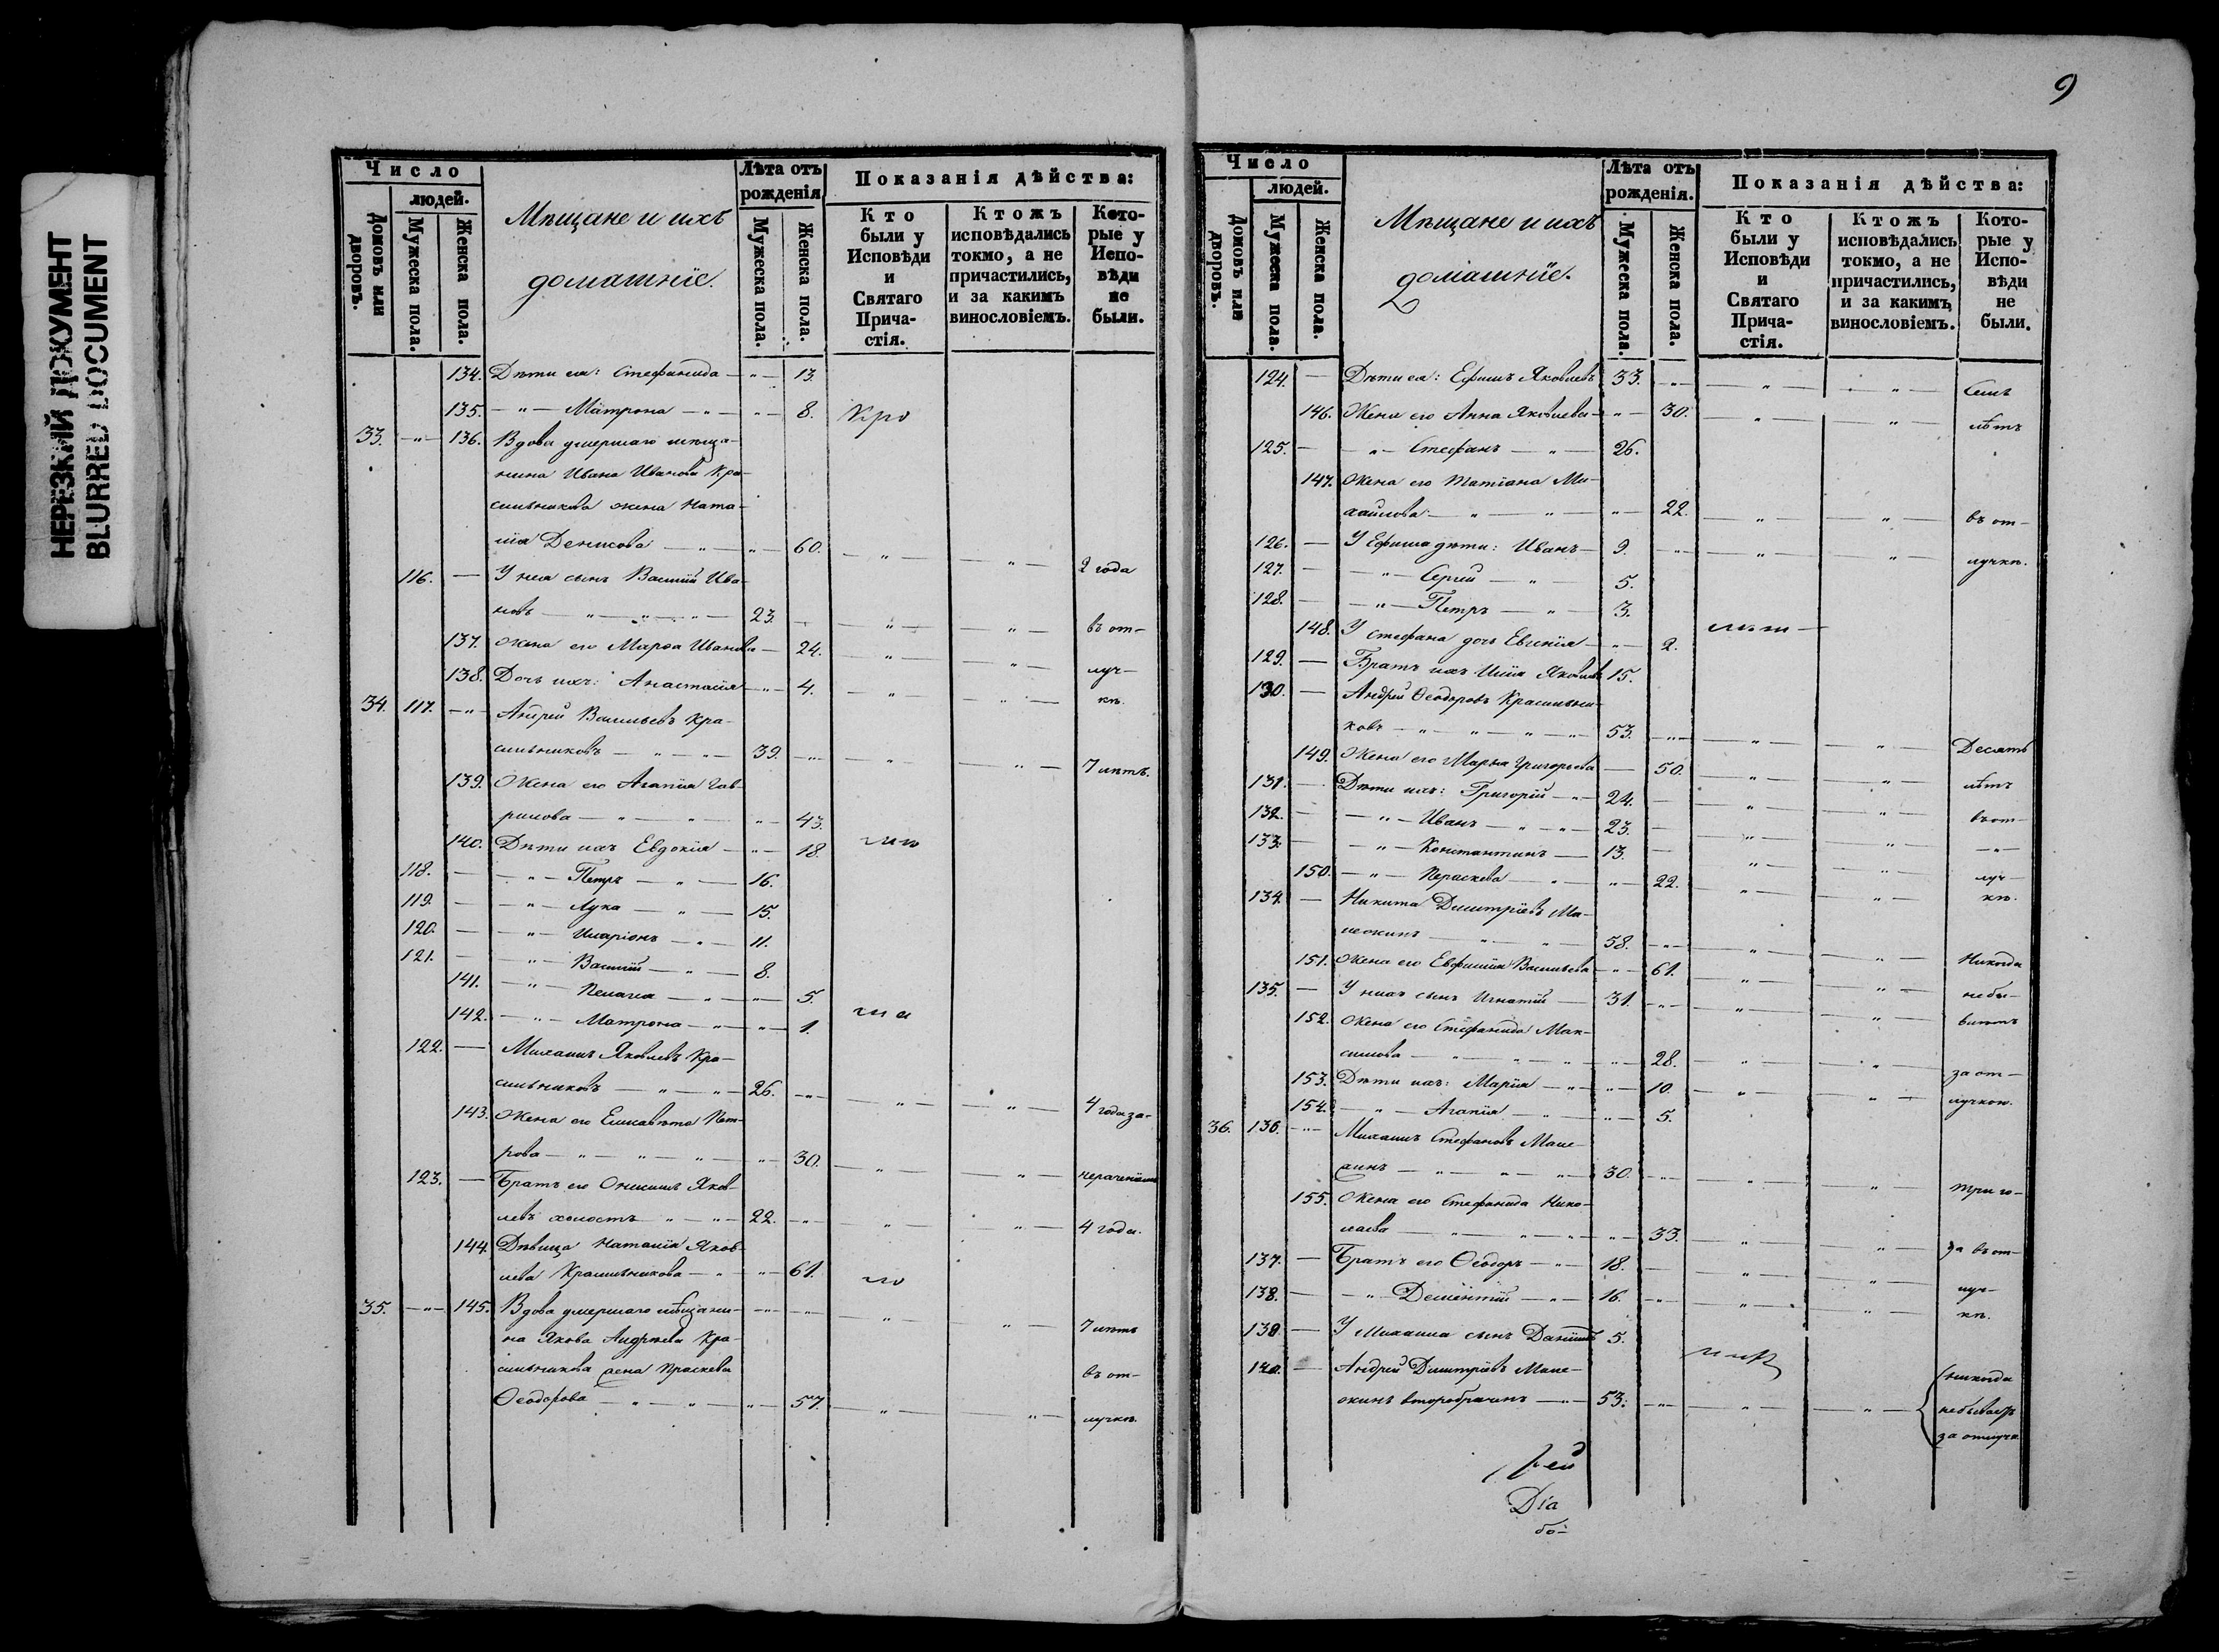 НЕРЕЗКИЙ ДОКУМЕНТ
BLURRED DOCUMENT
Число
людей.
Домовъ или дворовъ.
Мужеска пола.
Женска пола.
Мѣщане и ихъ
домашніе.
Лѣта отъ рожденія
Мужеска пола.
Женска пола.
Показанія дѣйства:
Кто были у Исповѣди и Святаго Причастія.
Ктожъ исповѣдались токмо, а не причастились, и за какимъ винословіемъ.
Которые у Исповѣди не были.
134. Дѣти ея: Стефанида — " — 13.
135. — " — Матрона — " — " — 8.
33. — " — 136. Вдова умершаго мѣща-
нина Ивана Иванова Кра-
сильникова жена Ната-
лія Денисова — " — " — 60. — " — — " — 2 года
116. — У нея сынъ Василій Ива-
новъ — " — " — " — 23. — — " — — " — въ от-
137. Жена его Марѳа Иванова — 24. — " — — " — луч-
138. Дочь ихъ: Анастасія — " — 4. — " — — " — кѣ.
34. 117. — " — Андрей Васильевъ Кра-
сильниковъ — " — " — 39. — " — — " — — " — 7 лѣтъ.
139. Жена его Агапія Гав-
рилова — " — " — " — 43.
140. Дѣти ихъ Евдокія — " — 18.
118. — — " — Петръ — " — 16.
119. — — " — Лука — " — 15.
120. — — " — Иларіонъ — " — 11.
121. — — " — Василій — " — 8.
141. — " — Пелагія — " — " — 5.
142. — " — Матрона — " — " — 1.
122. — Михаилъ Яковлевъ Кра-
сильниковъ — " — " — 26. — " — — " — — " — 4 года за-
143. Жена его Елисавета Пет-
рова — " — " — " — " — 30. — " — — " — нераченіемъ
123. — Братъ его Онисимъ Яков-
левъ холостъ — " — " — 22. — " — — " — — " — 4 года.
144. Дѣвица Наталія Яков-
лева Красильникова — " — " — 61.
35. — " — 145. Вдова умершаго мѣщани- — " — — " — — " — — " — 7 лѣтъ
на Якова Андреева Кра-
сильникова жена Праскева въ от-
Ѳеодорова — " — " — " — 57. — " — — " — лучкѣ.
9
Число
людей.
Домовъ или дворовъ.
Мужеска пола.
Женска пола.
Мѣщане и ихъ
домашніе.
Лѣта отъ рожденія.
Мужеска пола.
Женска пола.
Показанія дѣйства:
Кто были у Исповѣди и Святаго Причастія.
Ктожъ исповѣдались токмо, а не причастились, и за какимъ винословіемъ.
Которые у Исповѣди не были.
124. — Дѣти ея: Ефимъ Яковлевъ 33. — " — — " — — " — Семь
146. Жена его Анна Яковлева — " — 30. — " — — " — лѣтъ
125. — — " — Стефанъ — " — 26.
147. Жена его Татіана Ми-
хайлова — " — " — " — 22. — " — — " — въ от-
126. — У Ефима дѣти: Иванъ — 9. — " — — " — — " — лучкѣ.
127. — — " — Сергій — " — 5.
128. — — " — Петръ — " — 3.
148. У Стефана дочь Евгенія — " — 2.
129. — Братъ ихъ Илія Яковлевъ 15.
130. — Андрей Ѳеодоровъ Красильни-
ковъ — " — " — " — " — 53. — " — — " — — " — Десять
149. Жена его Марья Григорьева — 50. — " — — " — лѣтъ
131. — Дѣти ихъ: Григорій — " — 24. — — " — — " — въ от-
132. — — " — Иванъ — " — " — 23. — — " — — " — — " —
133. — — " — Константинъ — 13. — — " — — " — луч-
150. — " — Параскева — " — " — 22. — " — — " — кѣ.
134. — Никита Димитріевъ Ма-
лежинъ — " — " — 58. — " — — " — — " — Никогда
151. Жена его Евфимія Васильева — " — 61. — " — — " — не бы-
135. — У нихъ сынъ Игнатій — 31. — " — — " — — " — ваетъ
152. Жена его Стефанида Мак-
симова — " — " — " — " — 28. — " — — " — за от-
153. Дѣти ихъ: Марія — " — " — 10. — " — — " — лучкою.
154. — " — Агапія — " — " — 5.
36. 136. — " — Михаилъ Стефановъ Мале-
жинъ — " — " — " — 30. — " — — " — — " — три го-
155. Жена его Стефанида Нико-
лаева — " — " — " — " — 33. — " — — " — да въ от-
137. — Братъ его Ѳеодоръ — " — 18. — — " — — " — луч-
138. — — " — Дементій — " — 16. — " — — " — — " — кѣ.
139. — У Михаила сынъ Даніилъ 5.
140. — Андрей Димитріевъ Мале- никогда
жинъ второбрачнъ — " — 53. — " — — " — — " — не бываетъ
за отлучк.
рей
Dia